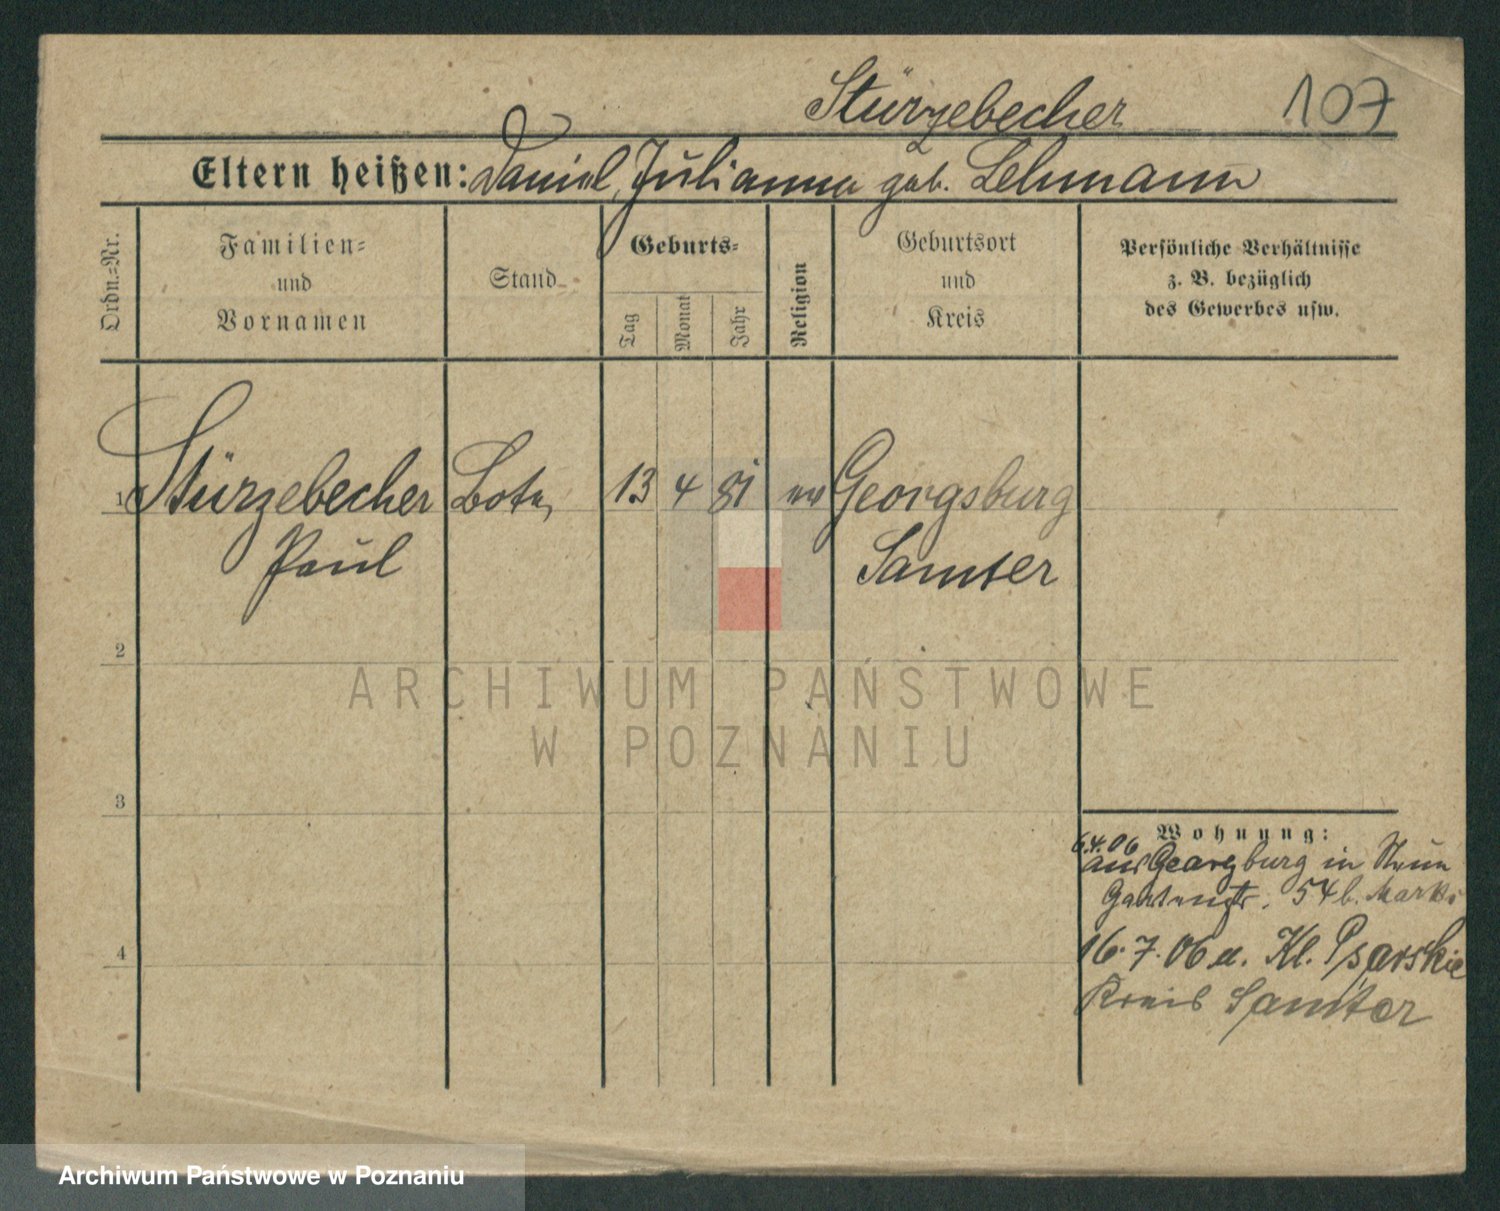 Stürzebecher 107
Eltern heißen: Daniel, Julianna geb. Lehmann
Ordn.-Nr.
Familien-
und
Vornamen
Stand
Geburts-
Tag
Monat
Jahr
Religion
Geburtsort
und
Kreis
Persönliche Verhältnisse
z. B. bezüglich
des Gewerbes usw.
1 Stürzebecher Bote 13 4 81 ev Georgsburg
Paul Samter
2
ARCHIWUM PAŃSTWOWE
W POZNANIU
3
Wohnung:
6.4.06
aus Georgburg in
Gartenstr. 54 b.
4
16.7.06 n. Kl. Psarskie
Kreis Samter
Archiwum Państwowe w Poznaniu